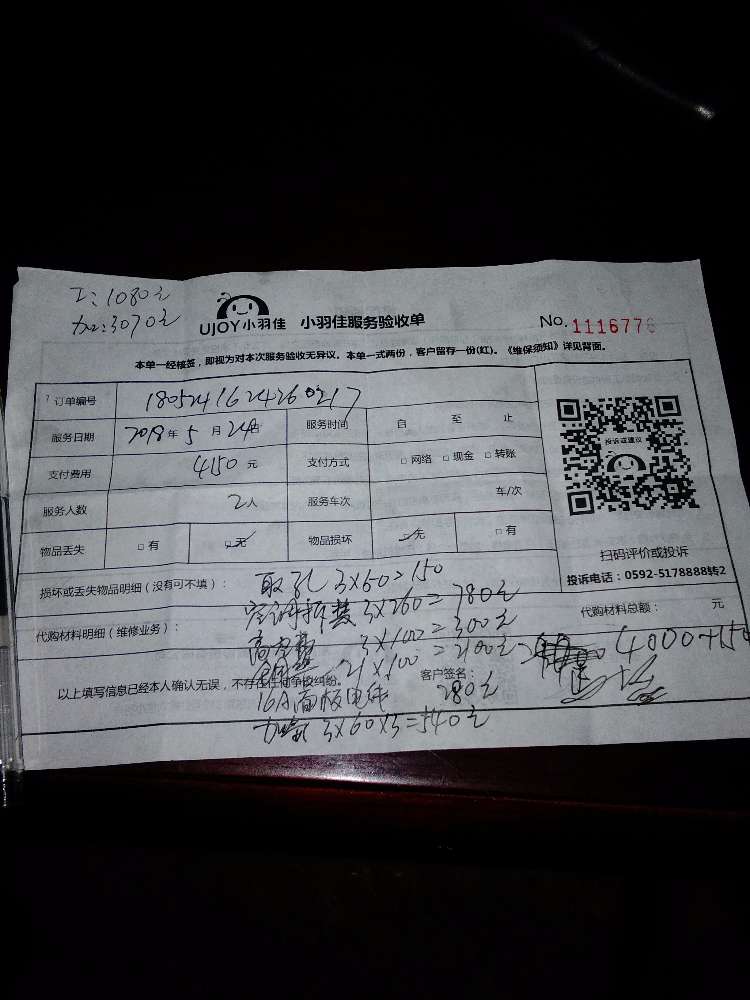 工:1080元
加:3070元
UJOY小羽佳 小羽佳服务验收单 No.1116776
本单一经核签，即视为对本次服务验收无异议。本单一式两份，客户留存一份(红)。《维保须知》详见背面。
订单编号 1805241624260217
服务日期 2018年5月24日 服务时间 自 至 止
支付费用 4150元 支付方式 □网络 □现金 □转账
服务人数 2人 服务车次 车/次
物品丢失 □有 □无 物品损坏 □无 □有
投诉或建议
扫码评价或投诉
投诉电话：0592-5178888转2
损坏或丢失物品明细（没有可不填）： 取孔 3×50=150
空调拆装 3×260=780元
代购材料明细（维修业务）： 代购材料总额： 元
高空费 3×100=300元
21×100=2100元 4000+150
以上填写信息已经本人确认无误，不存在任何争议纠纷。 客户签名：
16A面板电线 280元
加氟 3×60×3=540元